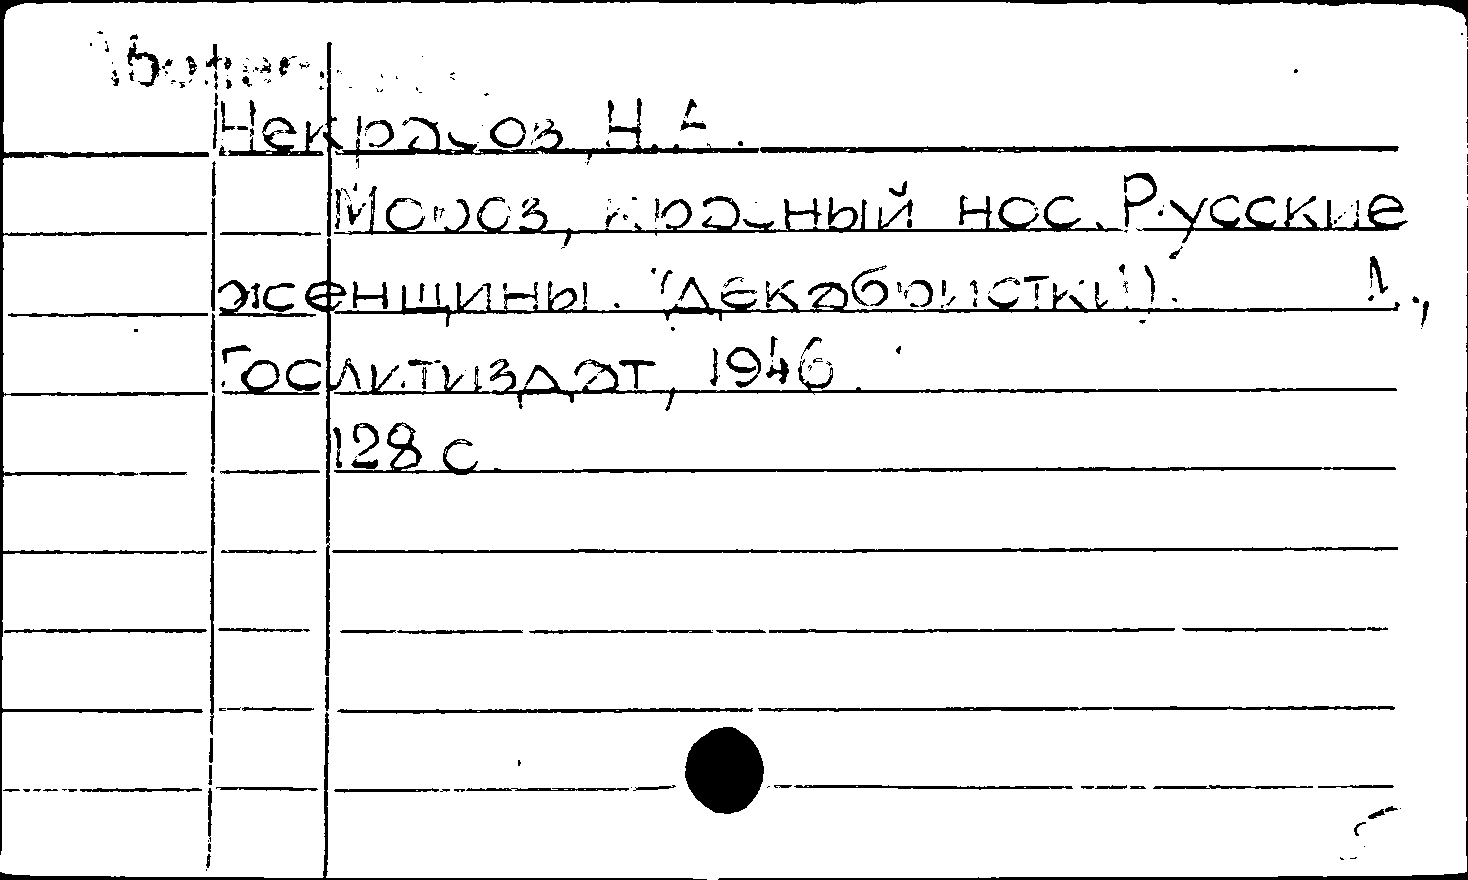 Некрасов, Н.А.
Мороз, красный нос. Русские
женщины. (Декабристки). М.,
Гослитиздат, 1946.
128 с.